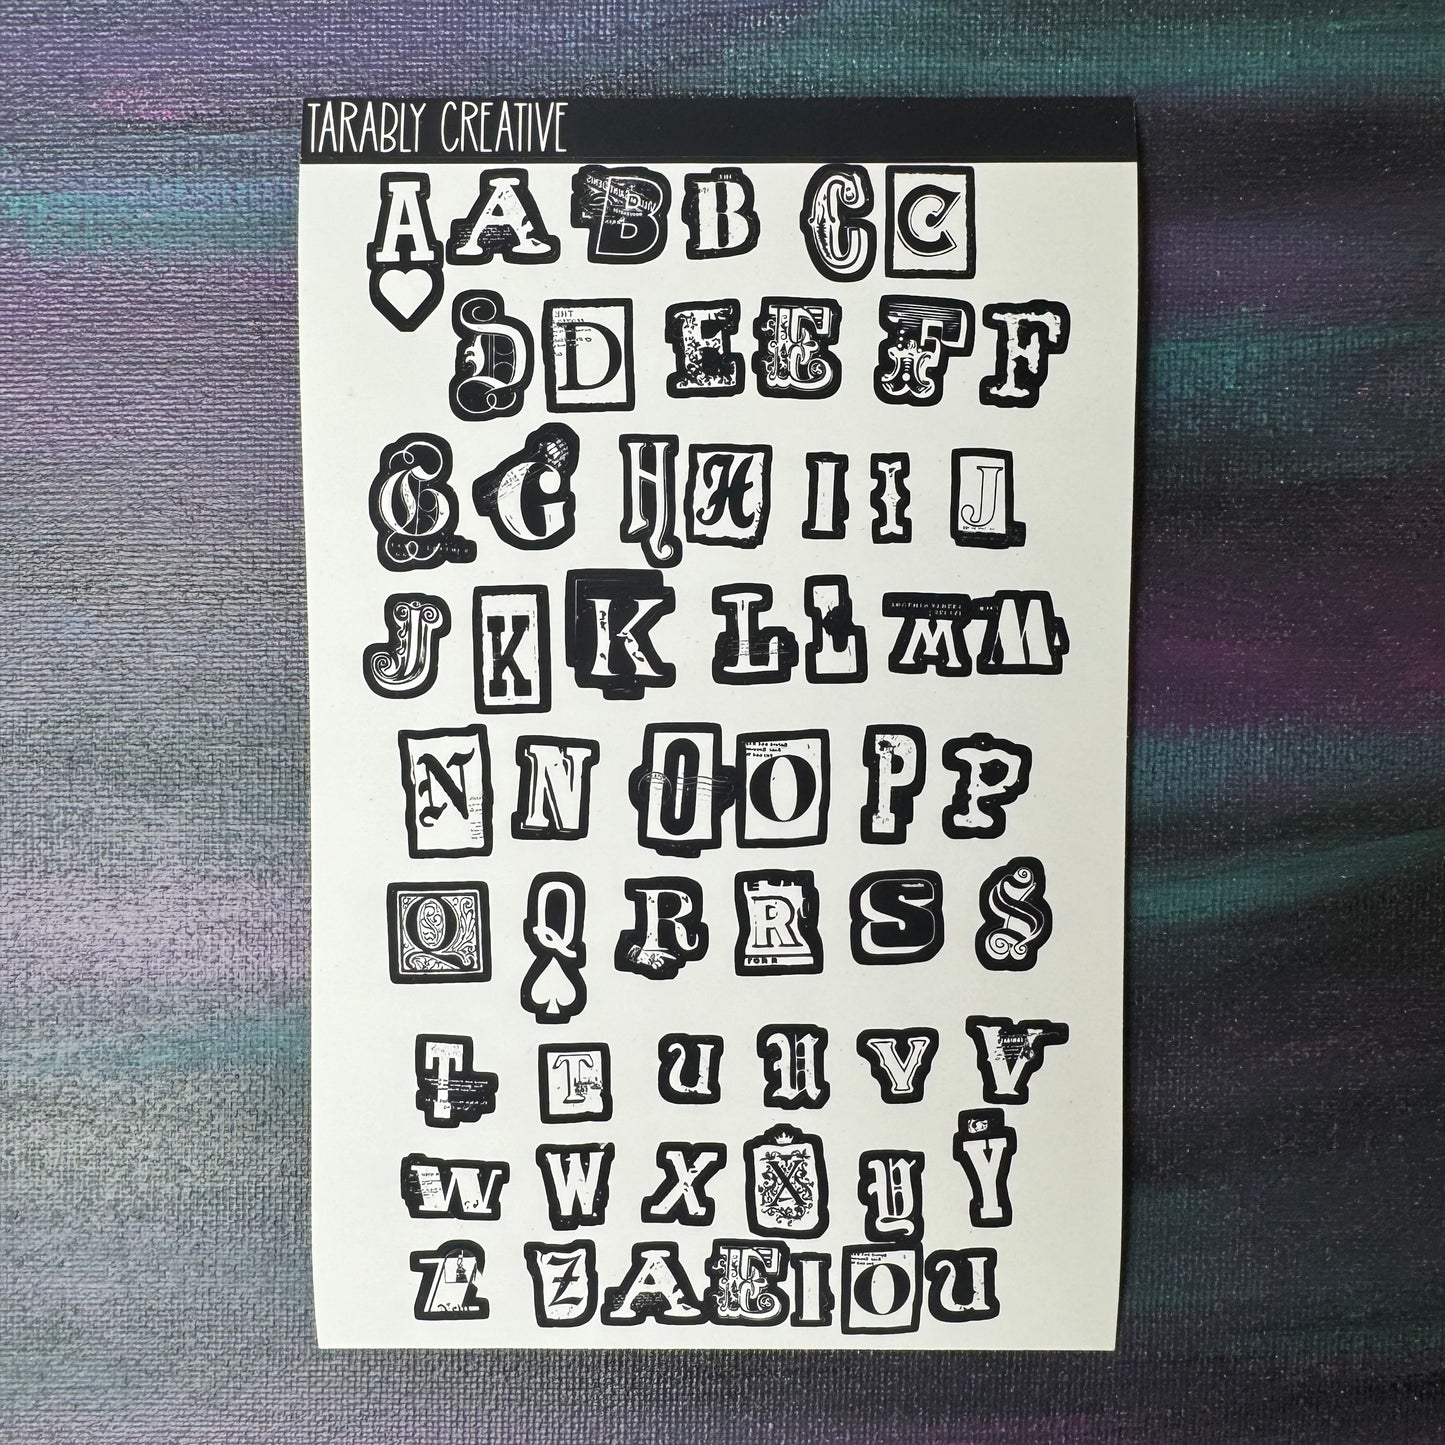 TARABLY CREATIVE
A A B B C C
D D E E F F
G G H H I I J
J K K L L M M
N N O O P P
Q Q R R S S
FOR A
T T U U V V
W W X X Y Y
Z Z A E I O U